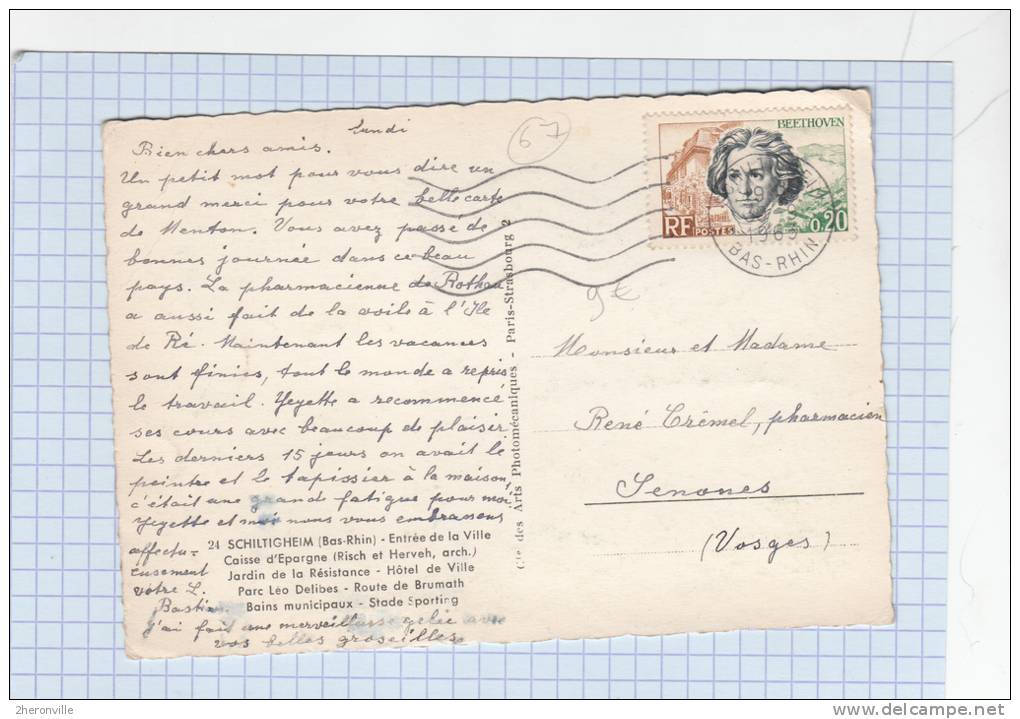 lundi
67
Bien chers amis.
Un petit mot pour vous dire un
grand merci pour votre belle carte
de Menton. Vous avez passé de
bonnes journée dans ce beau
pays. La pharmacienne de Rothau
a aussi fait de la voile à l'Ile
de Ré. Maintenant les vacances
sont finies, tout le monde a repris
le travail. Yeyette a recommencé
ses cours avec beaucoup de plaisir.
Les derniers 15 jours on avait le
peintre et le tapissier à la maison
c'était une grande fatigue pour moi.
Yeyette et moi nous vous embrassons
affectu=
eusement
votre L.
Bastin
j'ai fait une merveilleuse gelée avec
vos belles groseilles
24 SCHILTIGHEIM (Bas-Rhin) - Entrée de la Ville
Caisse d'Epargne (Risch et Herveh, arch.)
Jardin de la Résistance - Hôtel de Ville
Parc Léo Delibes - Route de Brumath
Bains municipaux - Stade Sporting
Cie des Arts Photomécaniques - Paris-Strasbourg 2
BEETHOVEN
RF
POSTES
0,20
1963
BAS-RHIN
9 €
Monsieur et Madame
René Crémel, pharmacien
Senones
(Vosges)
2heronville